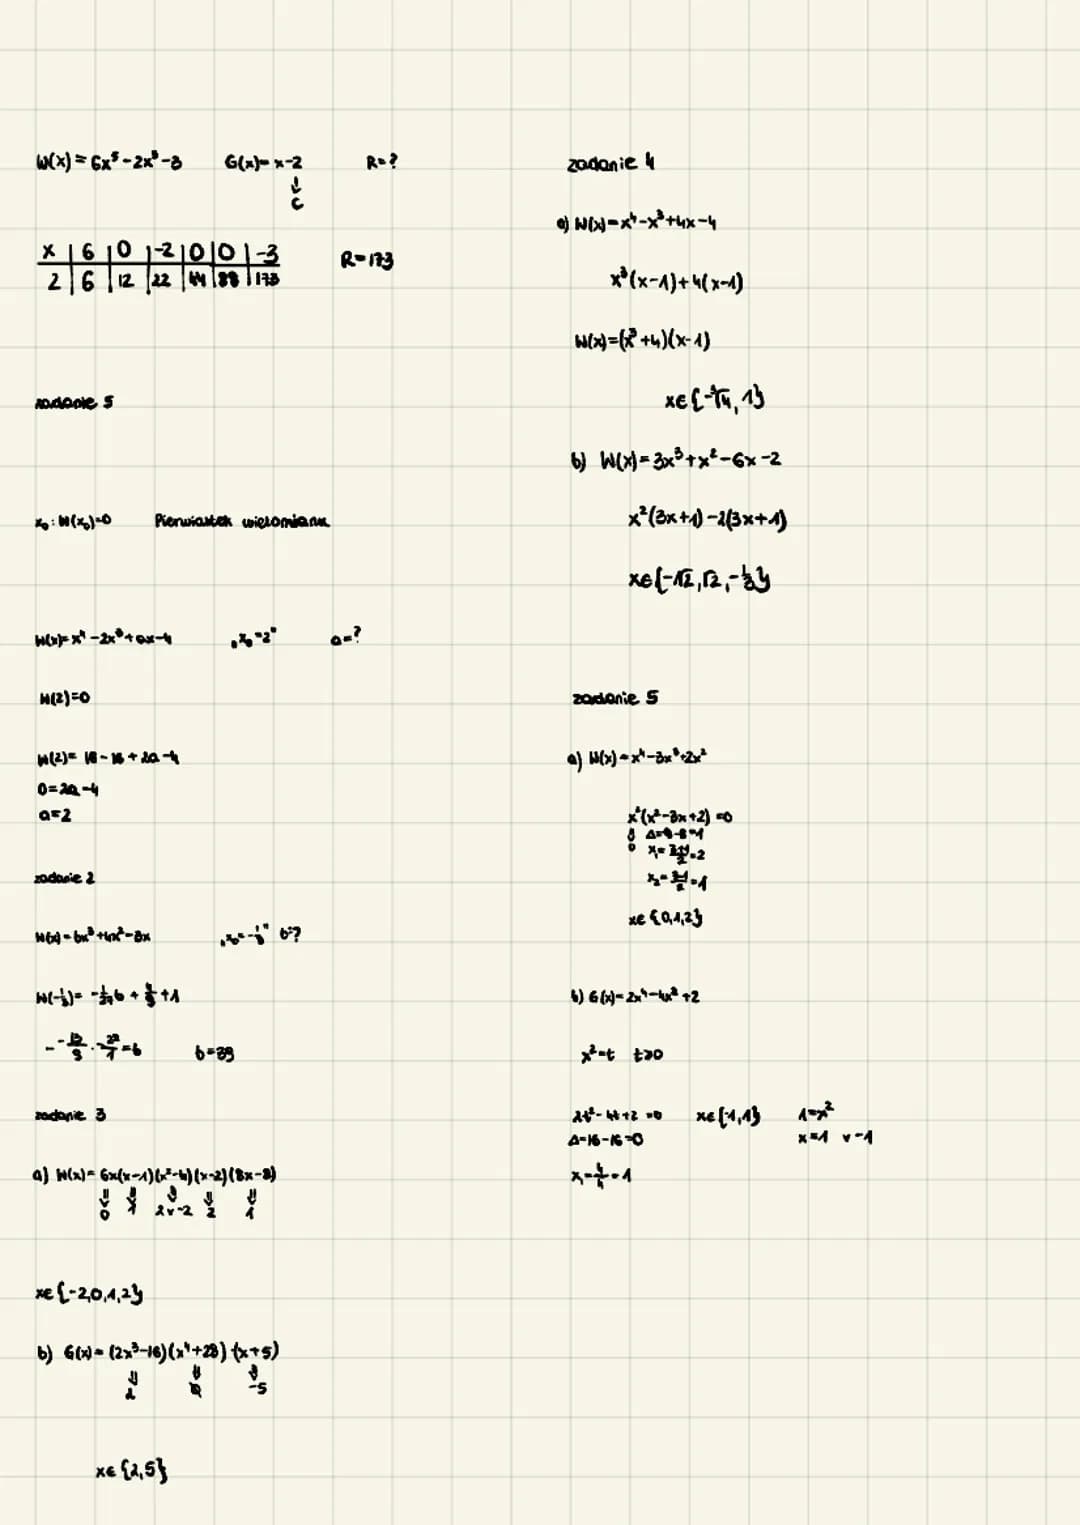 W(x) = 6x⁵ - 2x³ - 3 G(x) = x-2 R=?
⇓
c
x | 6 | 0 | -2 | 0 | 0 | -3
2 | 6 | 12 | 22 | 44 | 88 | 173
R=173
zadanie 5
x₀ : W(x₀)=0 Pierwiastek wielomianu
W(x)= x⁴ - 2x³ + ax - 4 „x₀=2" a=?
W(2)=0
W(2)= 16 - 16 + 2a - 4
0=2a-4
a=2
zadanie 2
W(x) = bx³ + 4x² - 3x „x₀=-1/3" b=?
W(-1/3)= -1/27 b + 4/9 + 1
- -13/9 · -27/1 = b b=39
zadanie 3
a) W(x)= 6x(x-1)(x²-4)(x-2)(8x-8)
⇓ ⇓ ⇓ ⇓ ⇓
0 1 2 v -2 2 1
x∈{-2,0,1,2}
b) G(x) = (2x³-16)(x⁴+28)(x+5)
⇓ ⇓ ⇓
2 ∅ -5
x∈{2,5}
zadanie 4
a) W(x) = x⁴-x³+4x-4
x³(x-1)+4(x-1)
W(x)=(x³+4)(x-1)
x∈{-³√4, 1}
b) W(x) = 3x³+x²-6x-2
x²(3x+1)-2(3x+1)
x∈{-√2,√2,-1/3}
zadanie 5
a) W(x) = x⁴-3x³+2x²
x²(x²-3x+2) =0
⇓ Δ=9-8=1
0 x₁= 3+1/2 =2
x₂= 3-1/2 =1
x∈{0,1,2}
b) G(x)= 2x⁴-4x²+2
x²=t t≥0
2t²-4t+2 =0 x∈{-1,1} 1=x²
Δ=16-16=0 x=1 v -1
x₁= 4/4 =1